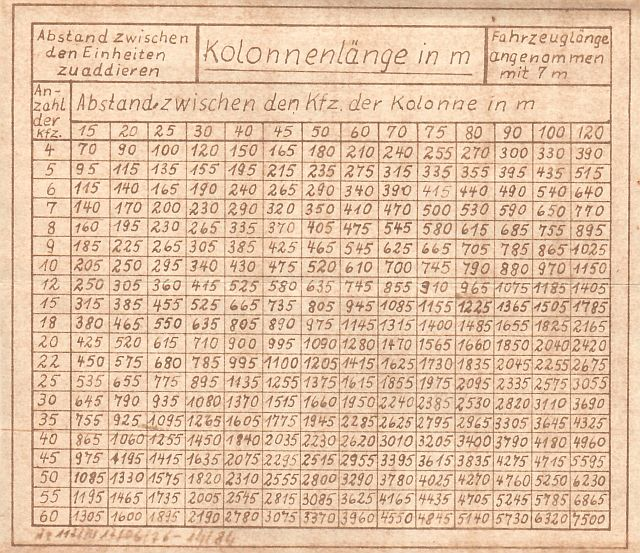 Abstand zwischen
den Einheiten
zu addieren
Kolonnenlänge in m
Fahrzeuglänge
angenommen
mit 7 m
An-
zahl
der
Kfz.
Abstand zwischen den Kfz. der Kolonne in m
15 20 25 30 40 45 50 60 70 75 80 90 100 120
4 70 90 100 120 150 165 180 210 240 255 270 300 330 390
5 95 115 135 155 195 215 235 275 315 335 355 395 435 515
6 115 140 165 190 240 265 290 340 390 415 440 490 540 640
7 140 170 200 230 290 320 350 410 470 500 530 590 650 770
8 160 195 230 265 335 370 405 475 545 580 615 685 755 895
9 185 225 265 305 385 425 465 545 625 665 705 785 865 1025
10 205 250 295 340 430 475 520 610 700 745 790 880 970 1150
12 250 305 360 415 525 580 635 745 855 910 965 1075 1185 1405
15 315 385 455 525 665 735 805 945 1085 1155 1225 1365 1505 1785
18 380 465 550 635 805 890 975 1145 1315 1400 1485 1655 1825 2165
20 425 520 615 710 900 995 1090 1280 1470 1565 1660 1850 2040 2420
22 450 575 680 785 995 1100 1205 1415 1625 1730 1835 2045 2255 2675
25 535 655 775 895 1135 1255 1375 1615 1855 1975 2095 2335 2575 3055
30 645 790 935 1080 1370 1515 1660 1950 2240 2385 2530 2820 3110 3690
35 755 925 1095 1265 1605 1775 1945 2285 2625 2795 2965 3305 3645 4325
40 865 1060 1255 1450 1840 2035 2230 2620 3010 3205 3400 3790 4180 4960
45 975 1195 1415 1635 2075 2295 2515 2955 3395 3615 3835 4275 4715 5595
50 1085 1330 1575 1820 2310 2555 2800 3290 3780 4025 4270 4760 5250 6230
55 1195 1465 1735 2005 2545 2815 3085 3625 4165 4435 4705 5245 5785 6865
60 1305 1600 1895 2190 2780 3075 3370 3960 4550 4845 5140 5730 6320 7500